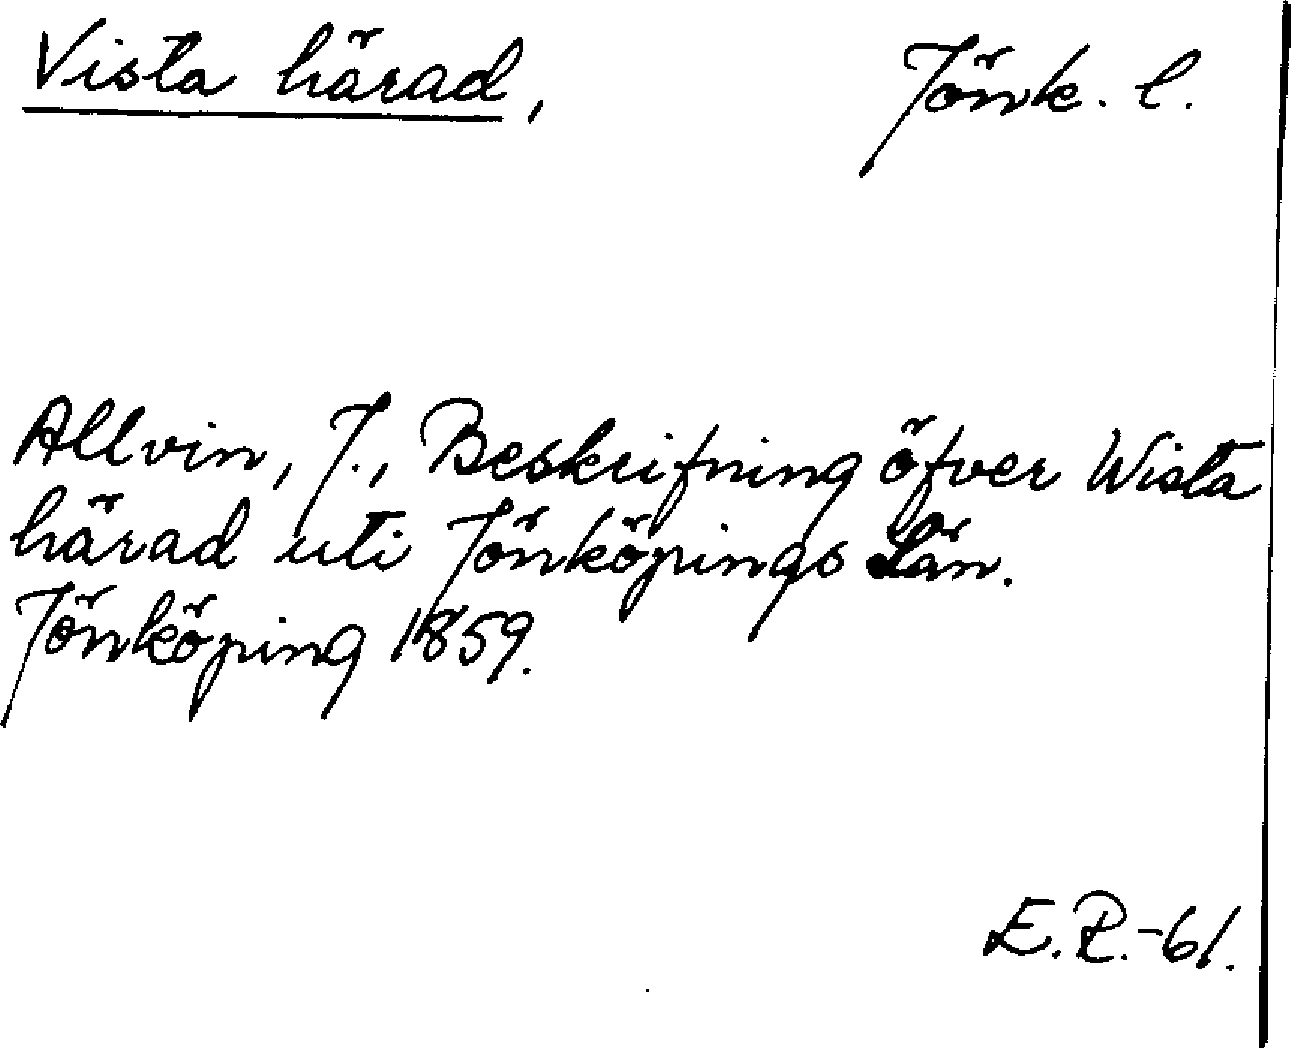 Vista härad, Jönk. l.
Allvin, J., Beskrifning öfver Wista
härad uti Jönköpings Län.
Jönköping 1859.
E.R.-61.